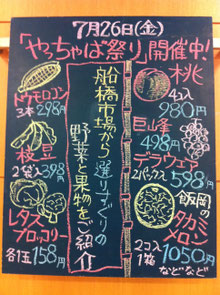 7月26日(金)
「やっちゃば祭り」開催中!
トウモロコシ
3本298円
枝豆
2袋398円
レタス
ブロッコリー
各1玉158円
船橋市場から選りすぐりの
野菜と果物をご紹介
桃
4コ入
980円
巨峰
498円
デラウェア
2パックス598円
飯岡の
タカミ
メロン
2コ入
1箱1050円
などなど